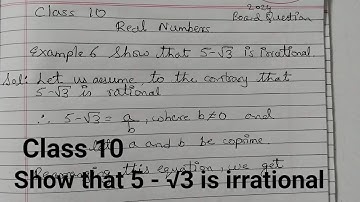 Class 10
2024
Board Question
Real Numbers
Example 6 Show that 5-√3 is irrational.
Sol: Let us assume to the contrary that
5-√3 is rational
∴ 5-√3 = a/b, where b≠0 and
a and b be coprime.
this equation, we get
Class 10
Show that 5 - √3 is irrational